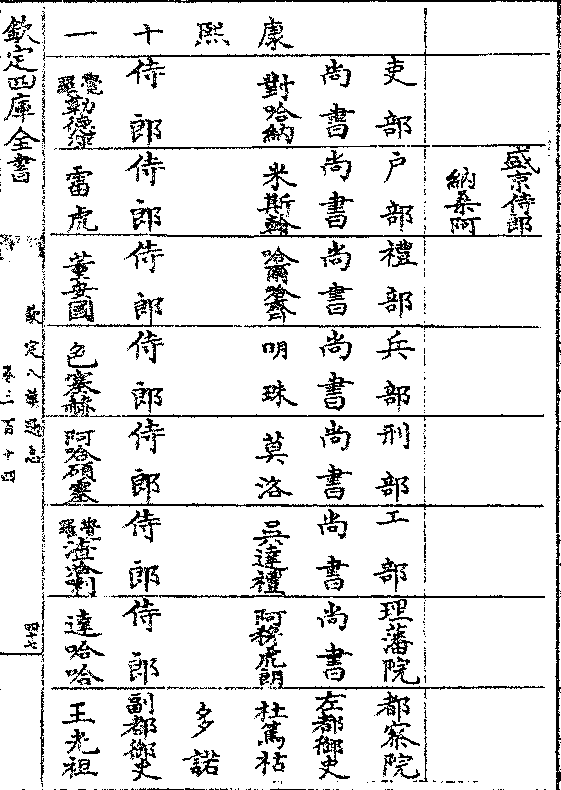 康熙十一
盛京侍郎
納桑阿
吏部 户部 禮部 兵部 刑部 工部 理藩院 都察院
尚書 尚書 尚書 尚書 尚書 尚書 尚書 左都御史
對哈納 米斯翰 哈爾哈齊 明珠 莫洛 吳達禮 阿穆虎朗 杜篤祜
多諾
侍郎 侍郎 侍郎 侍郎 侍郎 侍郎 侍郎 副都御史
覺羅勒德洪 雷虎 董安國 色塞赫 阿哈碩塞 覺羅 達哈哈 王光祖
欽定四庫全書
欽定八旗通志
卷三百十四
四十七